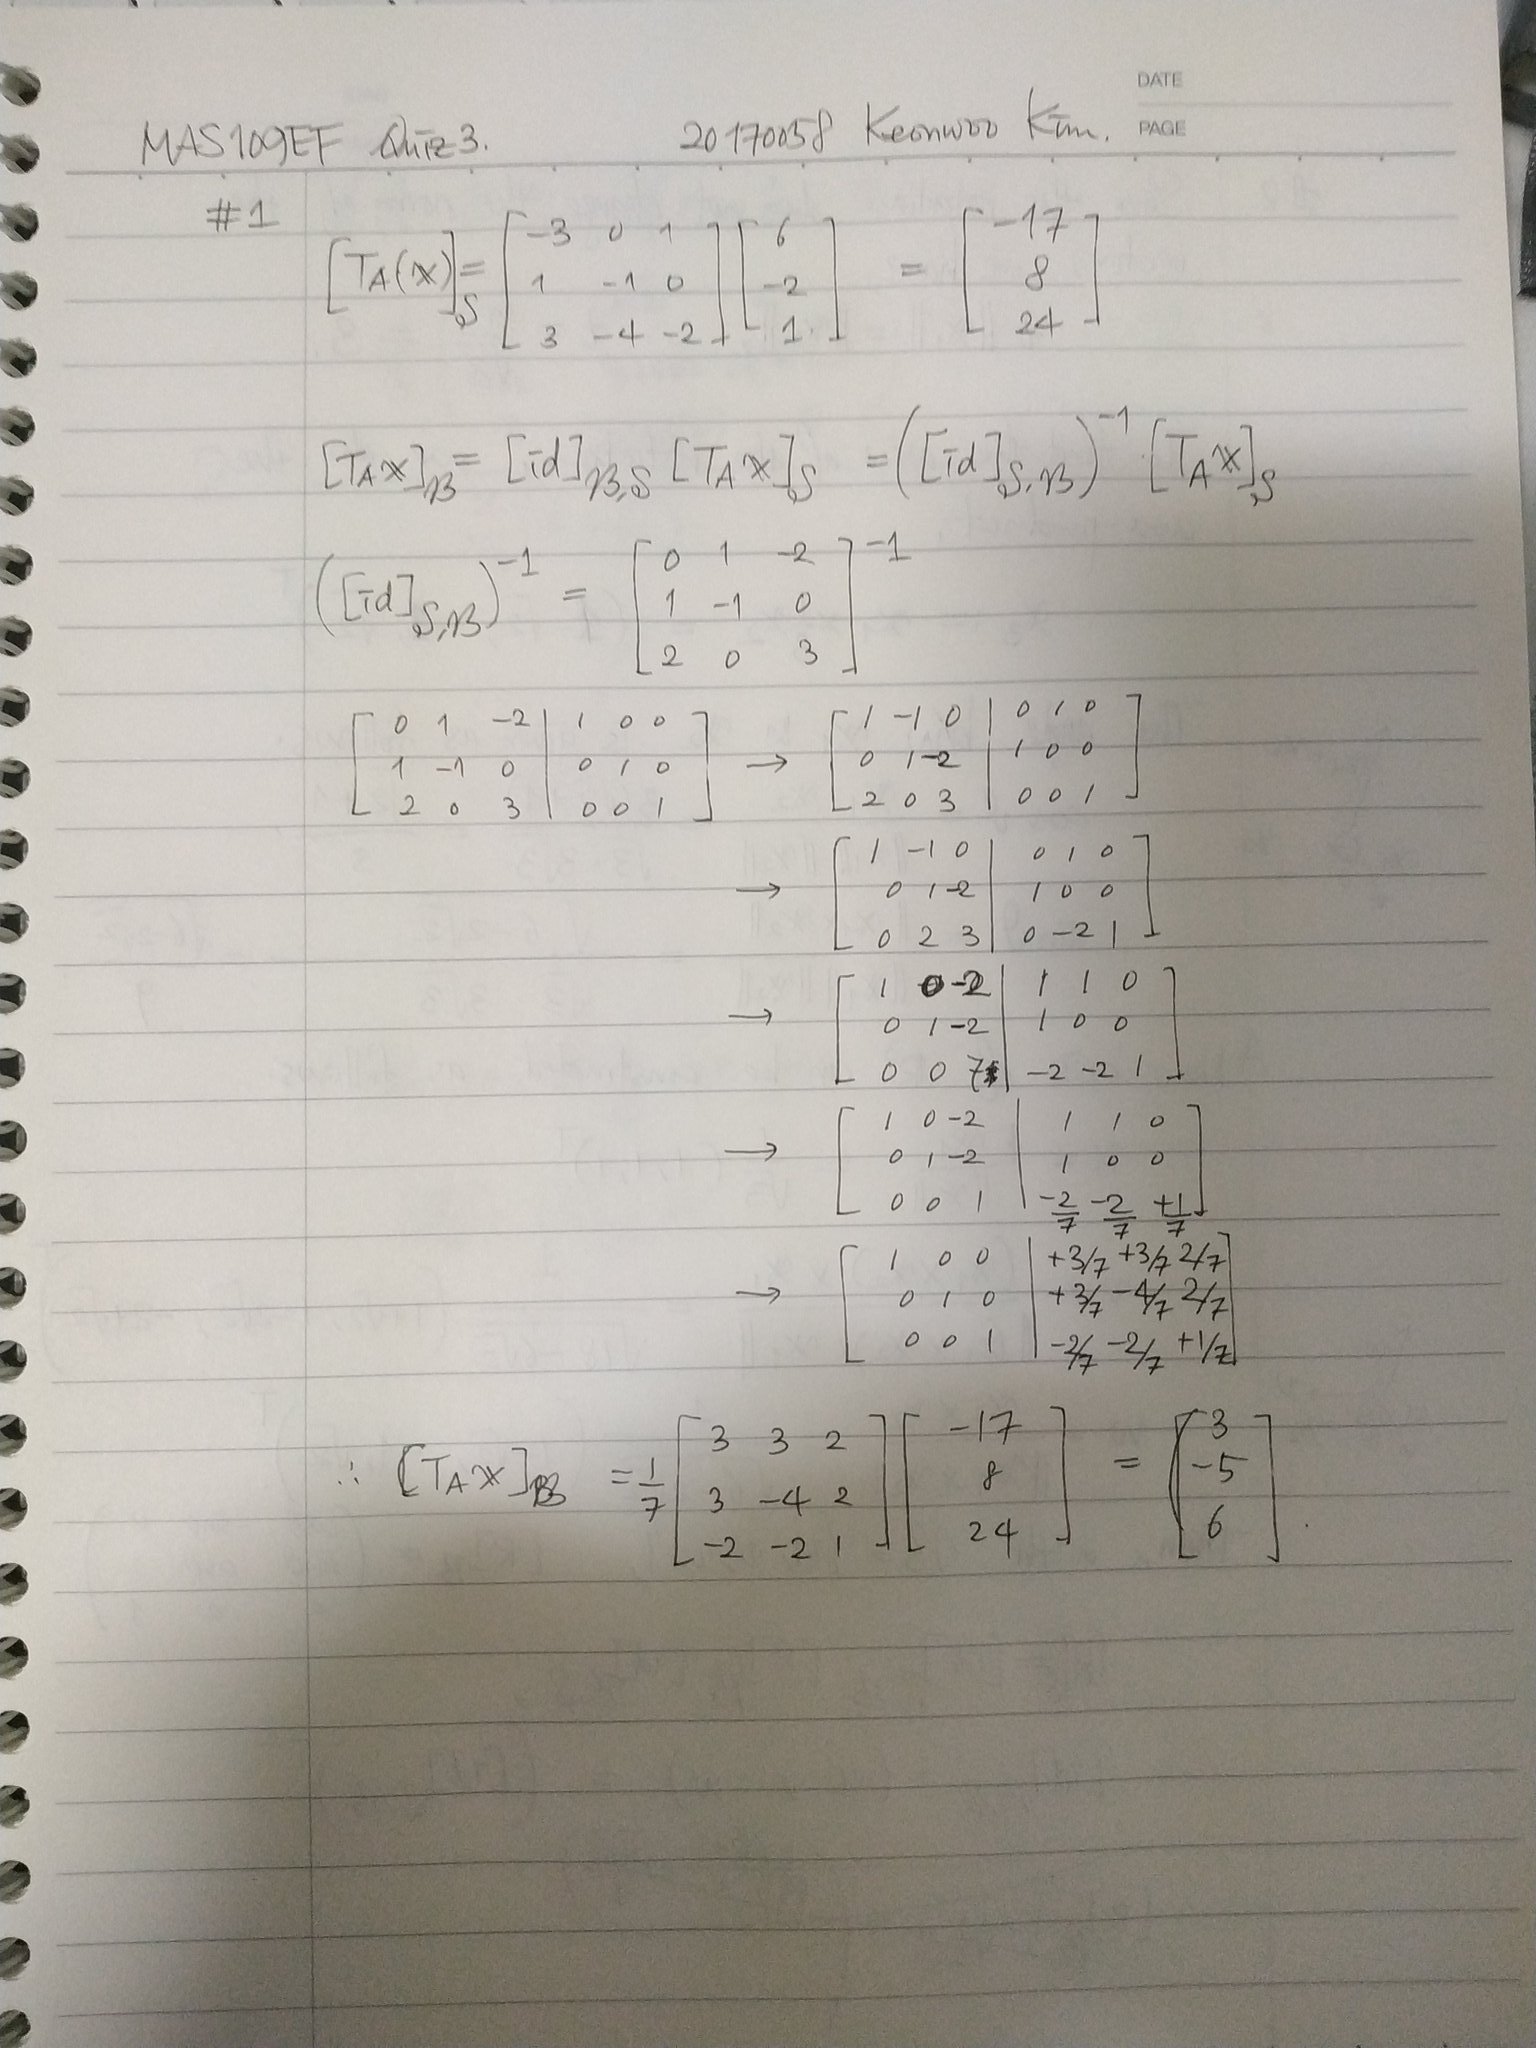 DATE
MAS109EF Quiz 3. 20170058 Keonwoo Kim. PAGE
#1
[T_A(x)]_S = [-3 0 1; 1 -1 0; 3 -4 -2] [6; -2; 1] = [-17; 8; 24]
[T_A x]_B = [id]_B,S [T_A x]_S = ([id]_S,B)^-1 [T_A x]_S
([id]_S,B)^-1 = [0 1 -2; 1 -1 0; 2 0 3]^-1
[0 1 -2 | 1 0 0; 1 -1 0 | 0 1 0; 2 0 3 | 0 0 1] → [1 -1 0 | 0 1 0; 0 1 -2 | 1 0 0; 2 0 3 | 0 0 1]
→ [1 -1 0 | 0 1 0; 0 1 -2 | 1 0 0; 0 2 3 | 0 -2 1]
→ [1 0 -2 | 1 1 0; 0 1 -2 | 1 0 0; 0 0 7 | -2 -2 1]
→ [1 0 -2 | 1 1 0; 0 1 -2 | 1 0 0; 0 0 1 | -2/7 -2/7 +1/7]
→ [1 0 0 | +3/7 +3/7 2/7; 0 1 0 | +3/7 -4/7 2/7; 0 0 1 | -2/7 -2/7 +1/7]
∴ [T_A x]_B = 1/7 [3 3 2; 3 -4 2; -2 -2 1] [-17; 8; 24] = [3; -5; 6].